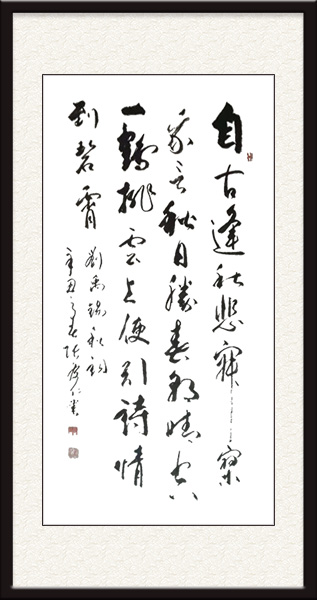 自古逢秋悲寂寥
我言秋日勝春朝晴空
一鶴排云上便引詩情
到碧霄
劉禹錫秋詞
辛丑